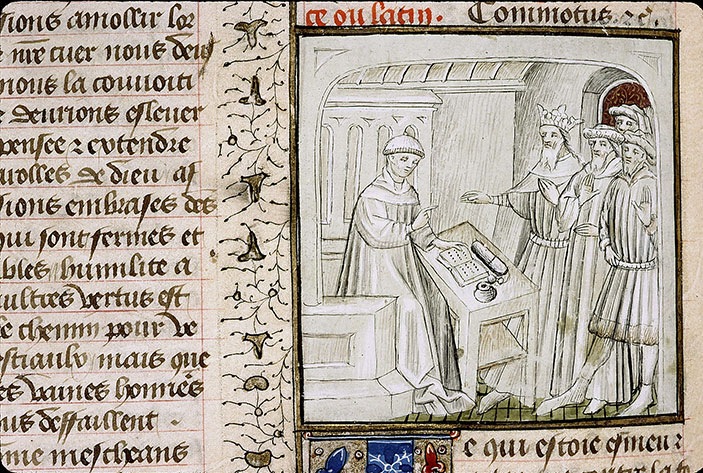 sions amollir lor
nre cuer nous deu
nous la couuoiti
e deurions esleuer
pensee ⁊ extendre
uolles de dieu as
sions embrases des
qui sont fermes et
ables humilite a
aultres vertus est
le chemin pour ve
estiaulx mais que
es vaines honnes
us deffaillent.
me mescheans
ce ou latin. Commotus. ⁊c.
e qui estoie esmeu ⁊